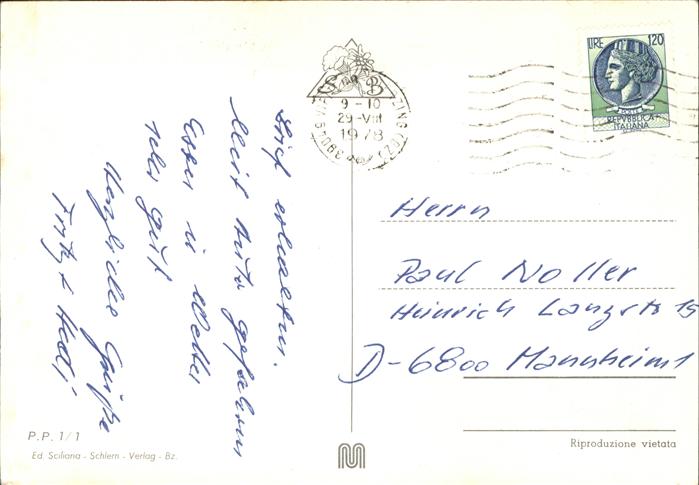 LIRE 120
REPVBBLICA
ITALIANA
9-10
29-VIII
1978
Mit Auto gefahren
Essen u Wetter
sehr gut
Herzliche Grüße
Fritz + Hedi
Herrn
Paul Noller
Heinrich Lanzstr 19
D-6800 Mannheim 1
P.P. 1/1
Ed. Sciliana - Schlern - Verlag - Bz.
Riproduzione vietata